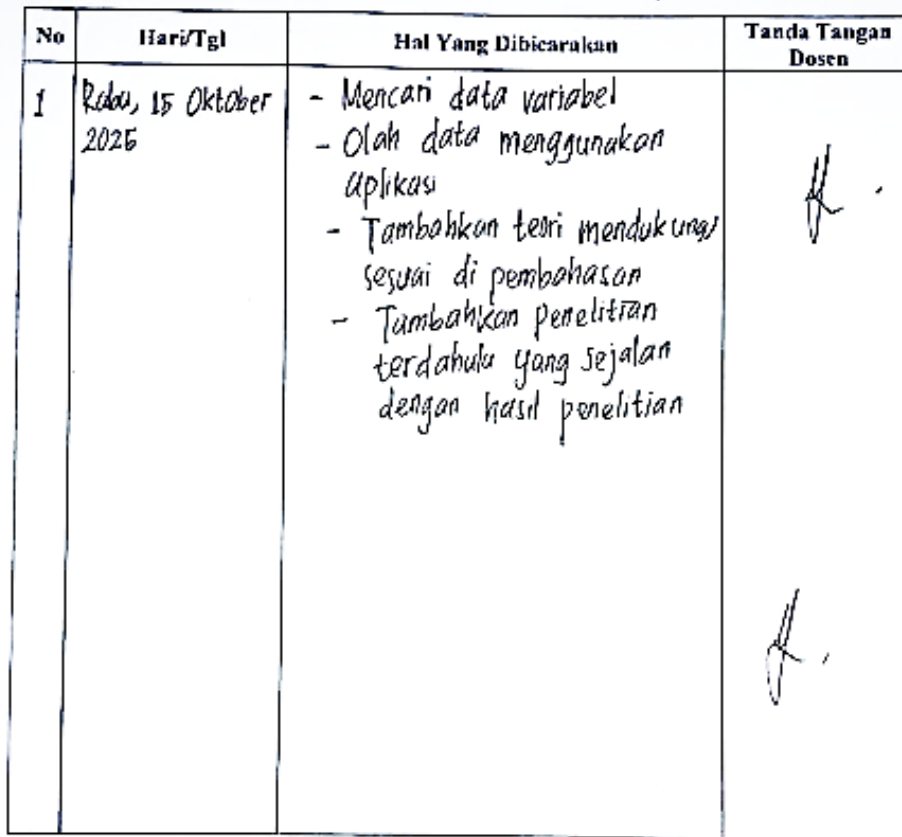 No Hari/Tgl Hal Yang Dibicarakan Tanda Tangan Dosen
1 Rabu, 15 Oktober 2025
- Mencari data variabel
- Olah data menggunakan
aplikasi
- Tambahkan teori mendukung
sesuai di pembahasan
- Tambahkan penelitian
terdahulu yang sejalan
dengan hasil penelitian